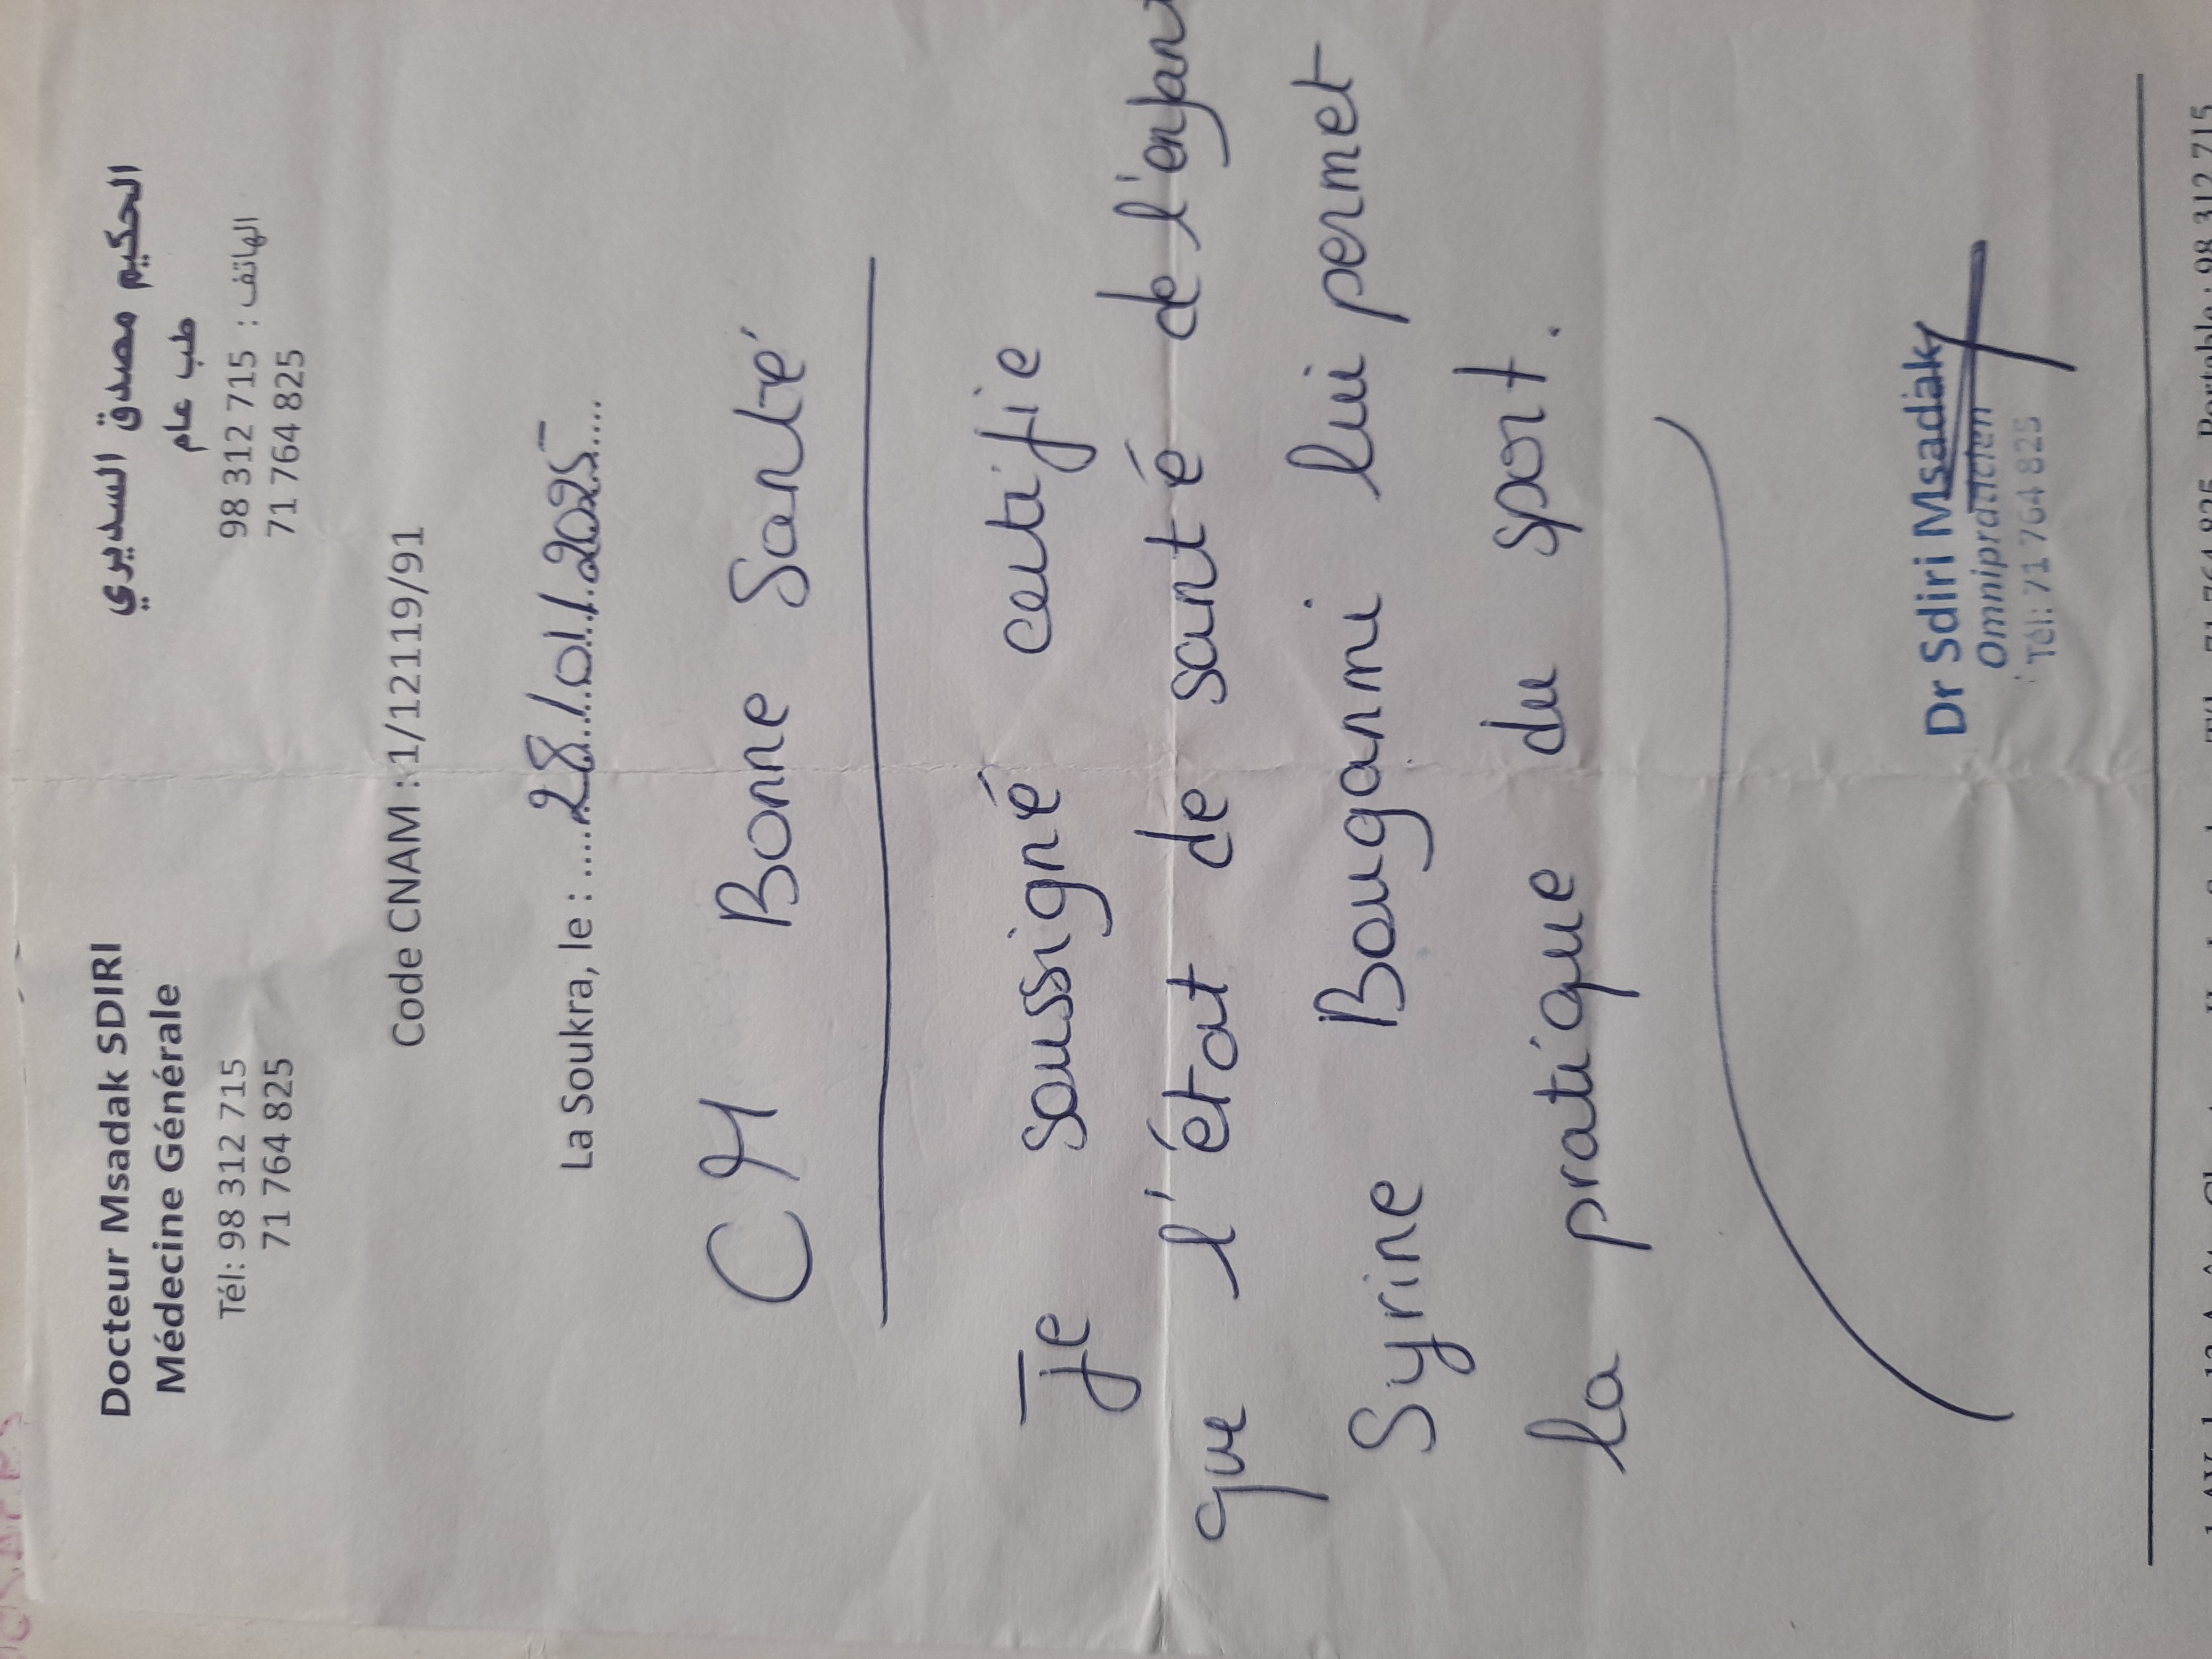 Docteur Msadak SDIRI
Médecine Générale
Tél: 98 312 715
71 764 825
الحكيم مصدق السديري
طب عام
الهاتف : 98 312 715
71 764 825
Code CNAM :1/12119/91
La Soukra, le : 28/01/2025
CM Bonne Santé
Je soussigné certifie
que l'état de santé de l'enfant
Syrine Bouganmi lui permet
la pratique du sport.
Dr Sdiri Msadak
Omnipraticien
Tél: 71 764 825
71 764 825 Portable : 98 312 715